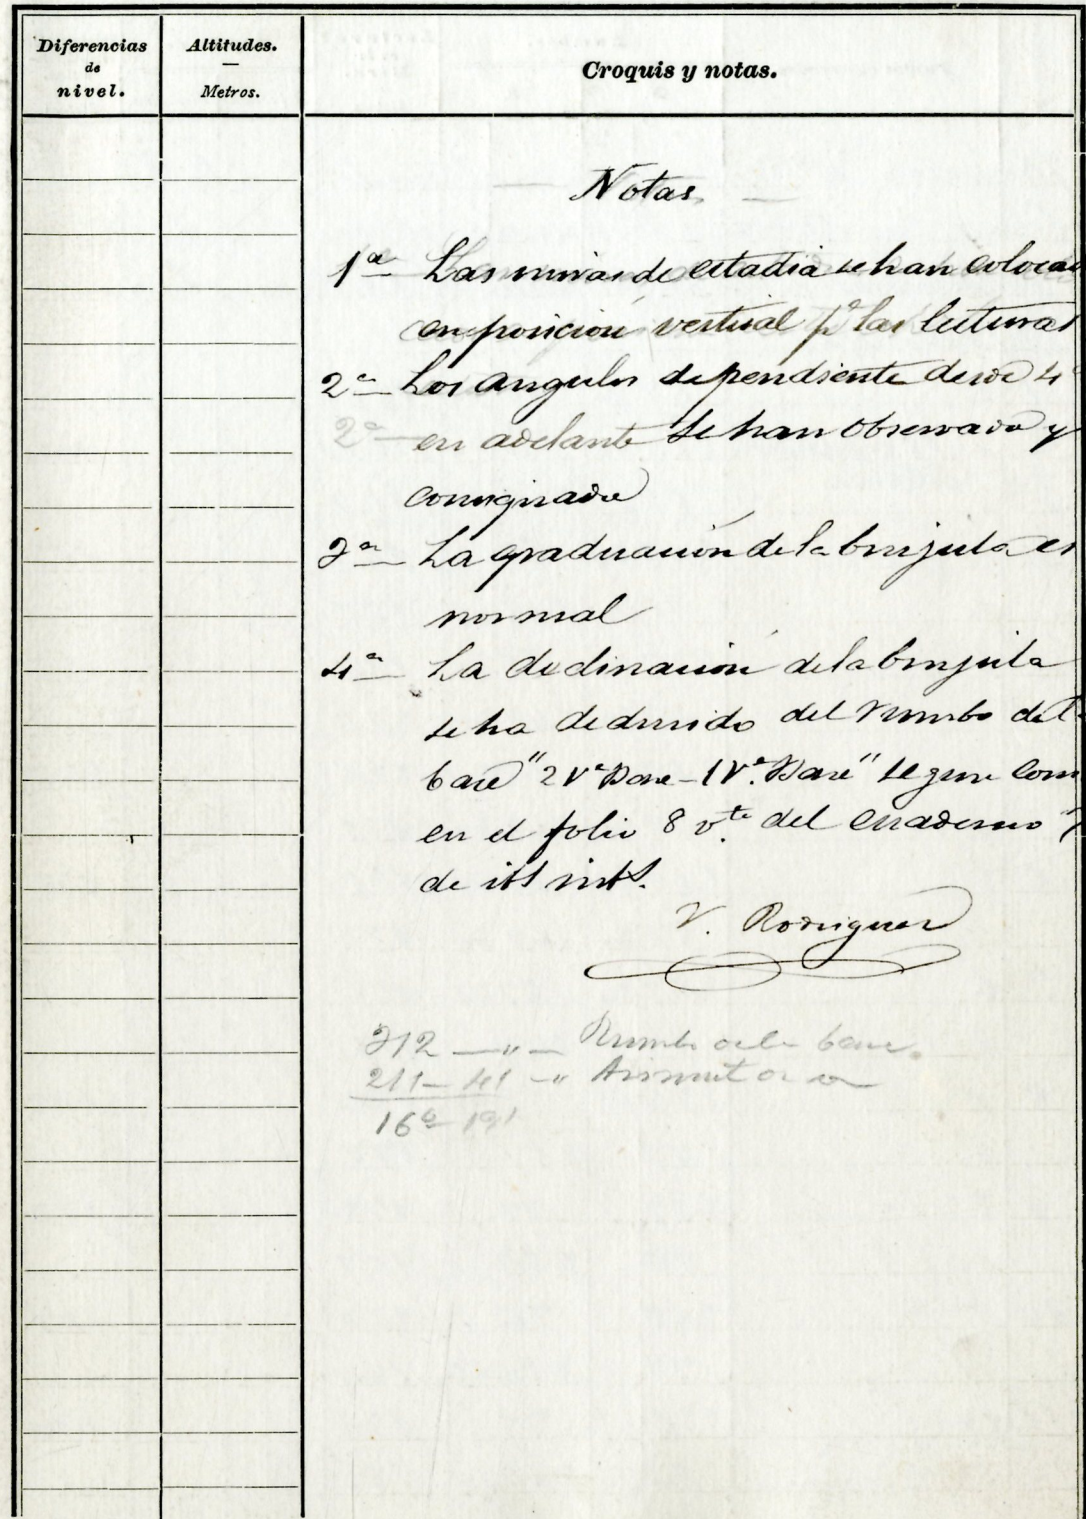 Diferencias
de
nivel.
Altitudes.
—
Metros.
Croquis y notas.
Notas
1ª Las miras de estadia se han colocad
en posicion vertical pª las lecturas
2ª Los angulos de pendiente desde 4º
2ª en adelante se han observado y
consignado
3ª La graduación de la brujula es
normal
4ª La declinación de la brujula
se ha deducido del rumbo del
base "2Vª Base - 1Vª. Base" segun
en el folio 8 v.to del cuaderno
de
V. Rodriguez
312 — " — Rumbo de la base.
211 — 41 — "
16º 19'